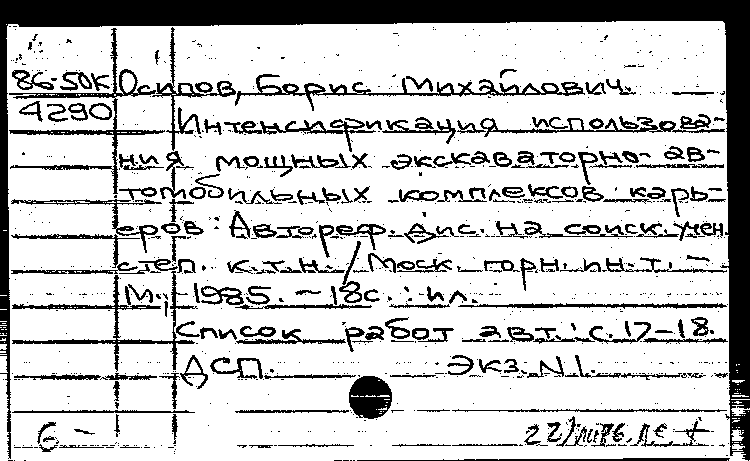 86-50К Осипов, Борис Михайлович.
4290 Интенсификация использова-
ния мощных экскаваторно-ав-
томобильных комплексов карь-
еров: Автореф. дис. на соиск. учен.
степ. к.т.н. / Моск. горн. ин-т. -
М., 1985. - 18с.: ил.
Список работ авт.: с. 17-18.
ДСП. Экз. N1.
6 -